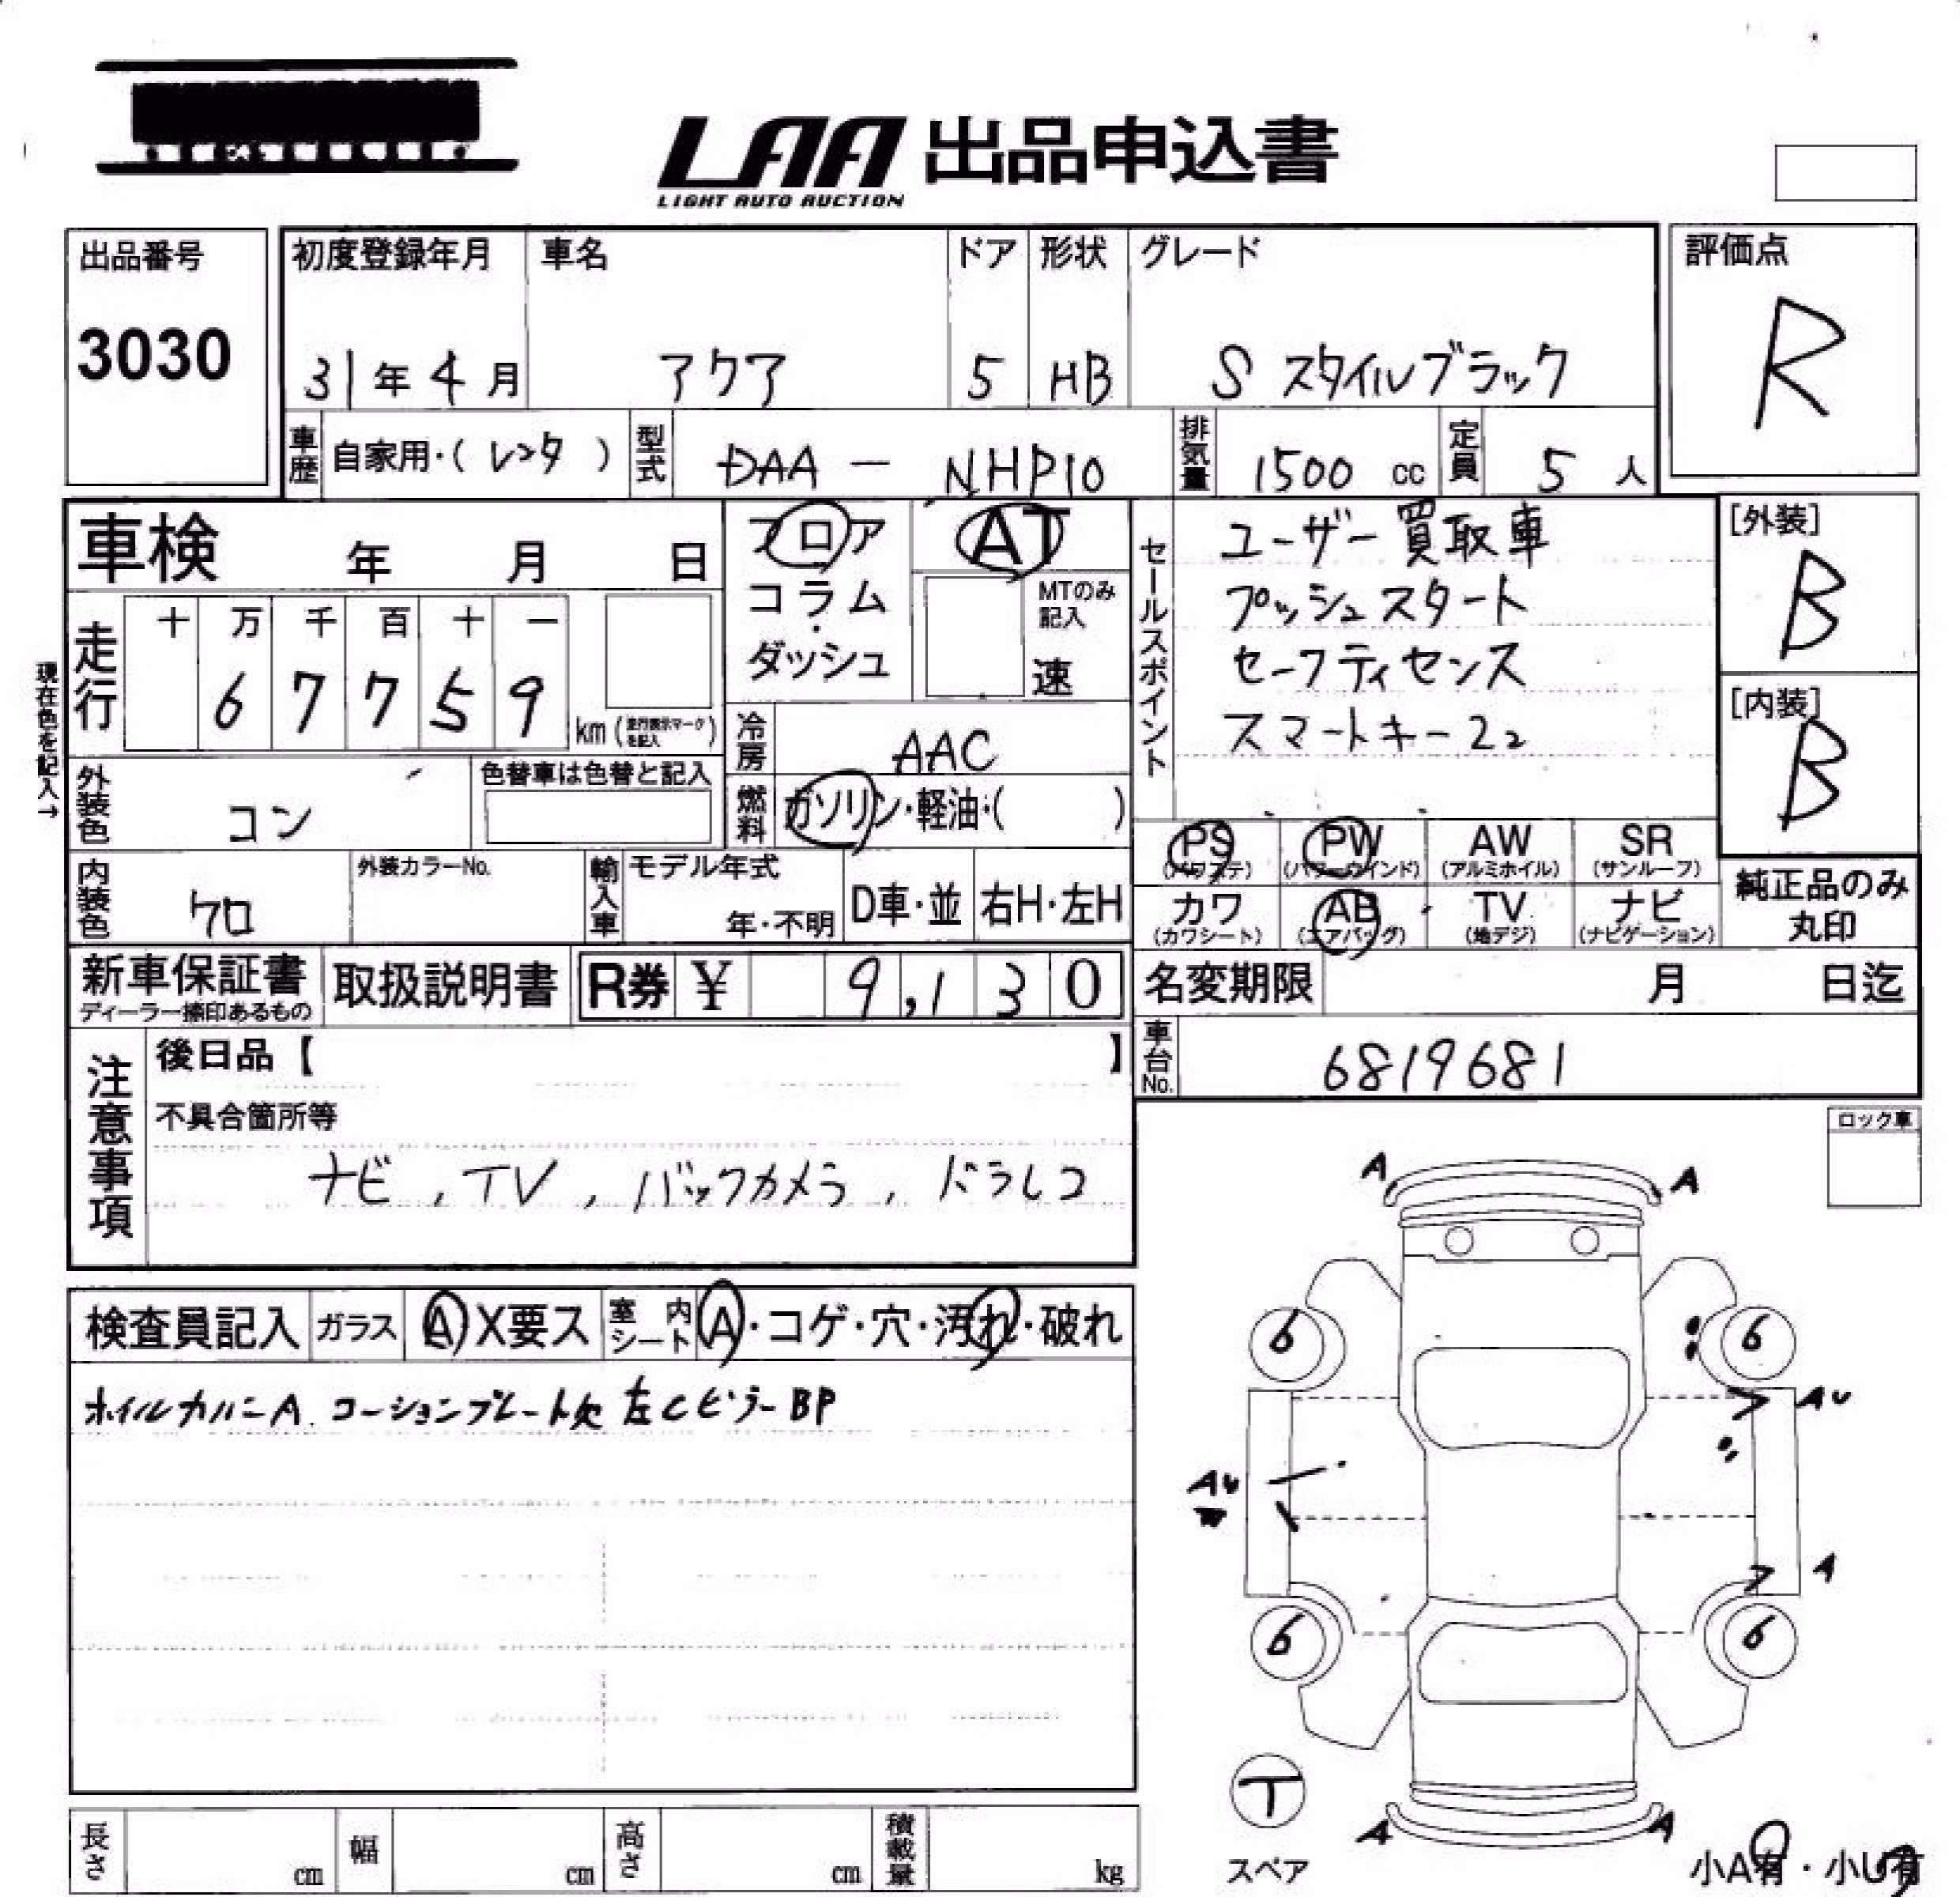 LAA 出品申込書
LIGHT AUTO AUCTION
出品番号 初度登録年月 車名 ドア 形状 グレード 評価点
3030 31年4月 アクア 5 HB S スタイルブラック R
車歴 自家用・(レンタ) 型式 DAA － NHP10 排気量 1500 cc 定員 5 人
車検 年 月 日
フロア
コラム・
ダッシュ
AT
MTのみ
記入
速
セールスポイント
ユーザー買取車
プッシュスタート
セーフティセンス
スマートキー2コ
[外装]
B
[内装]
B
現在色を記入→
走行
十 万 千 百 十 一
6 7 7 5 9
km (走行表示マークを記入)
冷房 AAC
外装色 コン 色替車は色替と記入
燃料 ガソリン・軽油・( )
PS AB PW AW SR
(パワステ) (パワーウインド) (アルミホイル) (サンルーフ)
内装色 クロ 外装カラーNo. 輸入車 モデル年式
年・不明 D車・並 右H・左H
カワ AB TV ナビ
(カワシート) (エアバッグ) (地デジ) (ナビゲーション)
純正品のみ
丸印
新車保証書 取扱説明書 R券 ¥ 9,130
ディーラー捺印あるもの
名変期限 月 日迄
車台No. 6819681
注意事項
後日品【 】
不具合箇所等
ナビ，TV，バックカメラ，ドラレコ
ロック車
検査員記入 ガラス A X要ス 室内シート A・コゲ・穴・汚れ・破れ
ホイルカバーA. コーションプレート欠 左Cピラー BP
A A
6 6
AU
AU
A
6 6
T
スペア
A A
小A有・小U有
長さ cm 幅 cm 高さ cm 積載量 kg